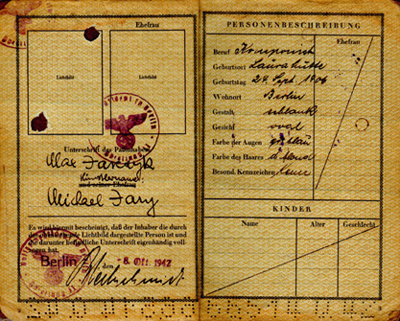 Ehefrau
Lichtbild
Lichtbild
Unterschrift des Paßinhabers
Max
und seiner Ehefrau
Michael Jary
Es wird hiermit bescheinigt, daß der Inhaber die durch
das Lichtbild dargestellte Person ist und
die darunter befindliche Unterschrift eigenhändig voll-
zogen hat.
Berlin den -8. Okt. 1942
PERSONENBESCHREIBUNG
Ehefrau
Beruf Komponist
Geburtsort Laurahütte
Geburtstag 24. Sept. 1906
Wohnort Berlin
Gestalt schlank
Gesicht oval
Farbe der Augen
Farbe des Haares
Besond. Kennzeichen keine
KINDER
Name Alter Geschlecht